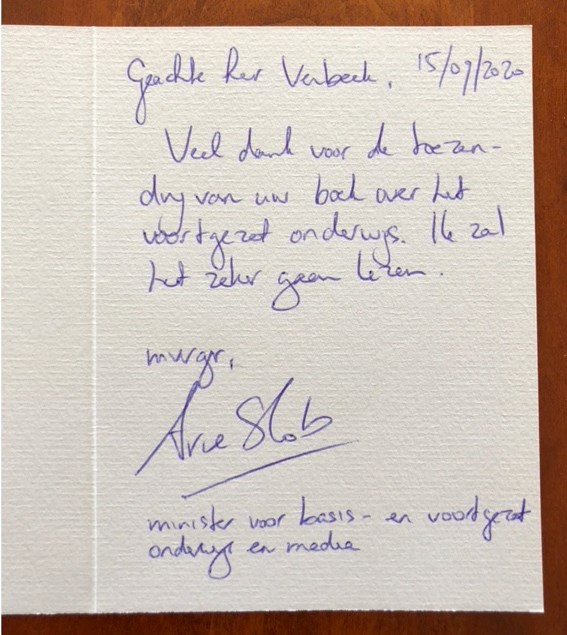 Geachte heer Verbeek, 15/09/2020
Veel dank voor de toezen-
ding van uw boek over het
voortgezet onderwijs. Ik zal
het zeker gaan lezen.
mvrgr,
Arie Slob
minister voor basis- en voortgezet
onderwijs en media